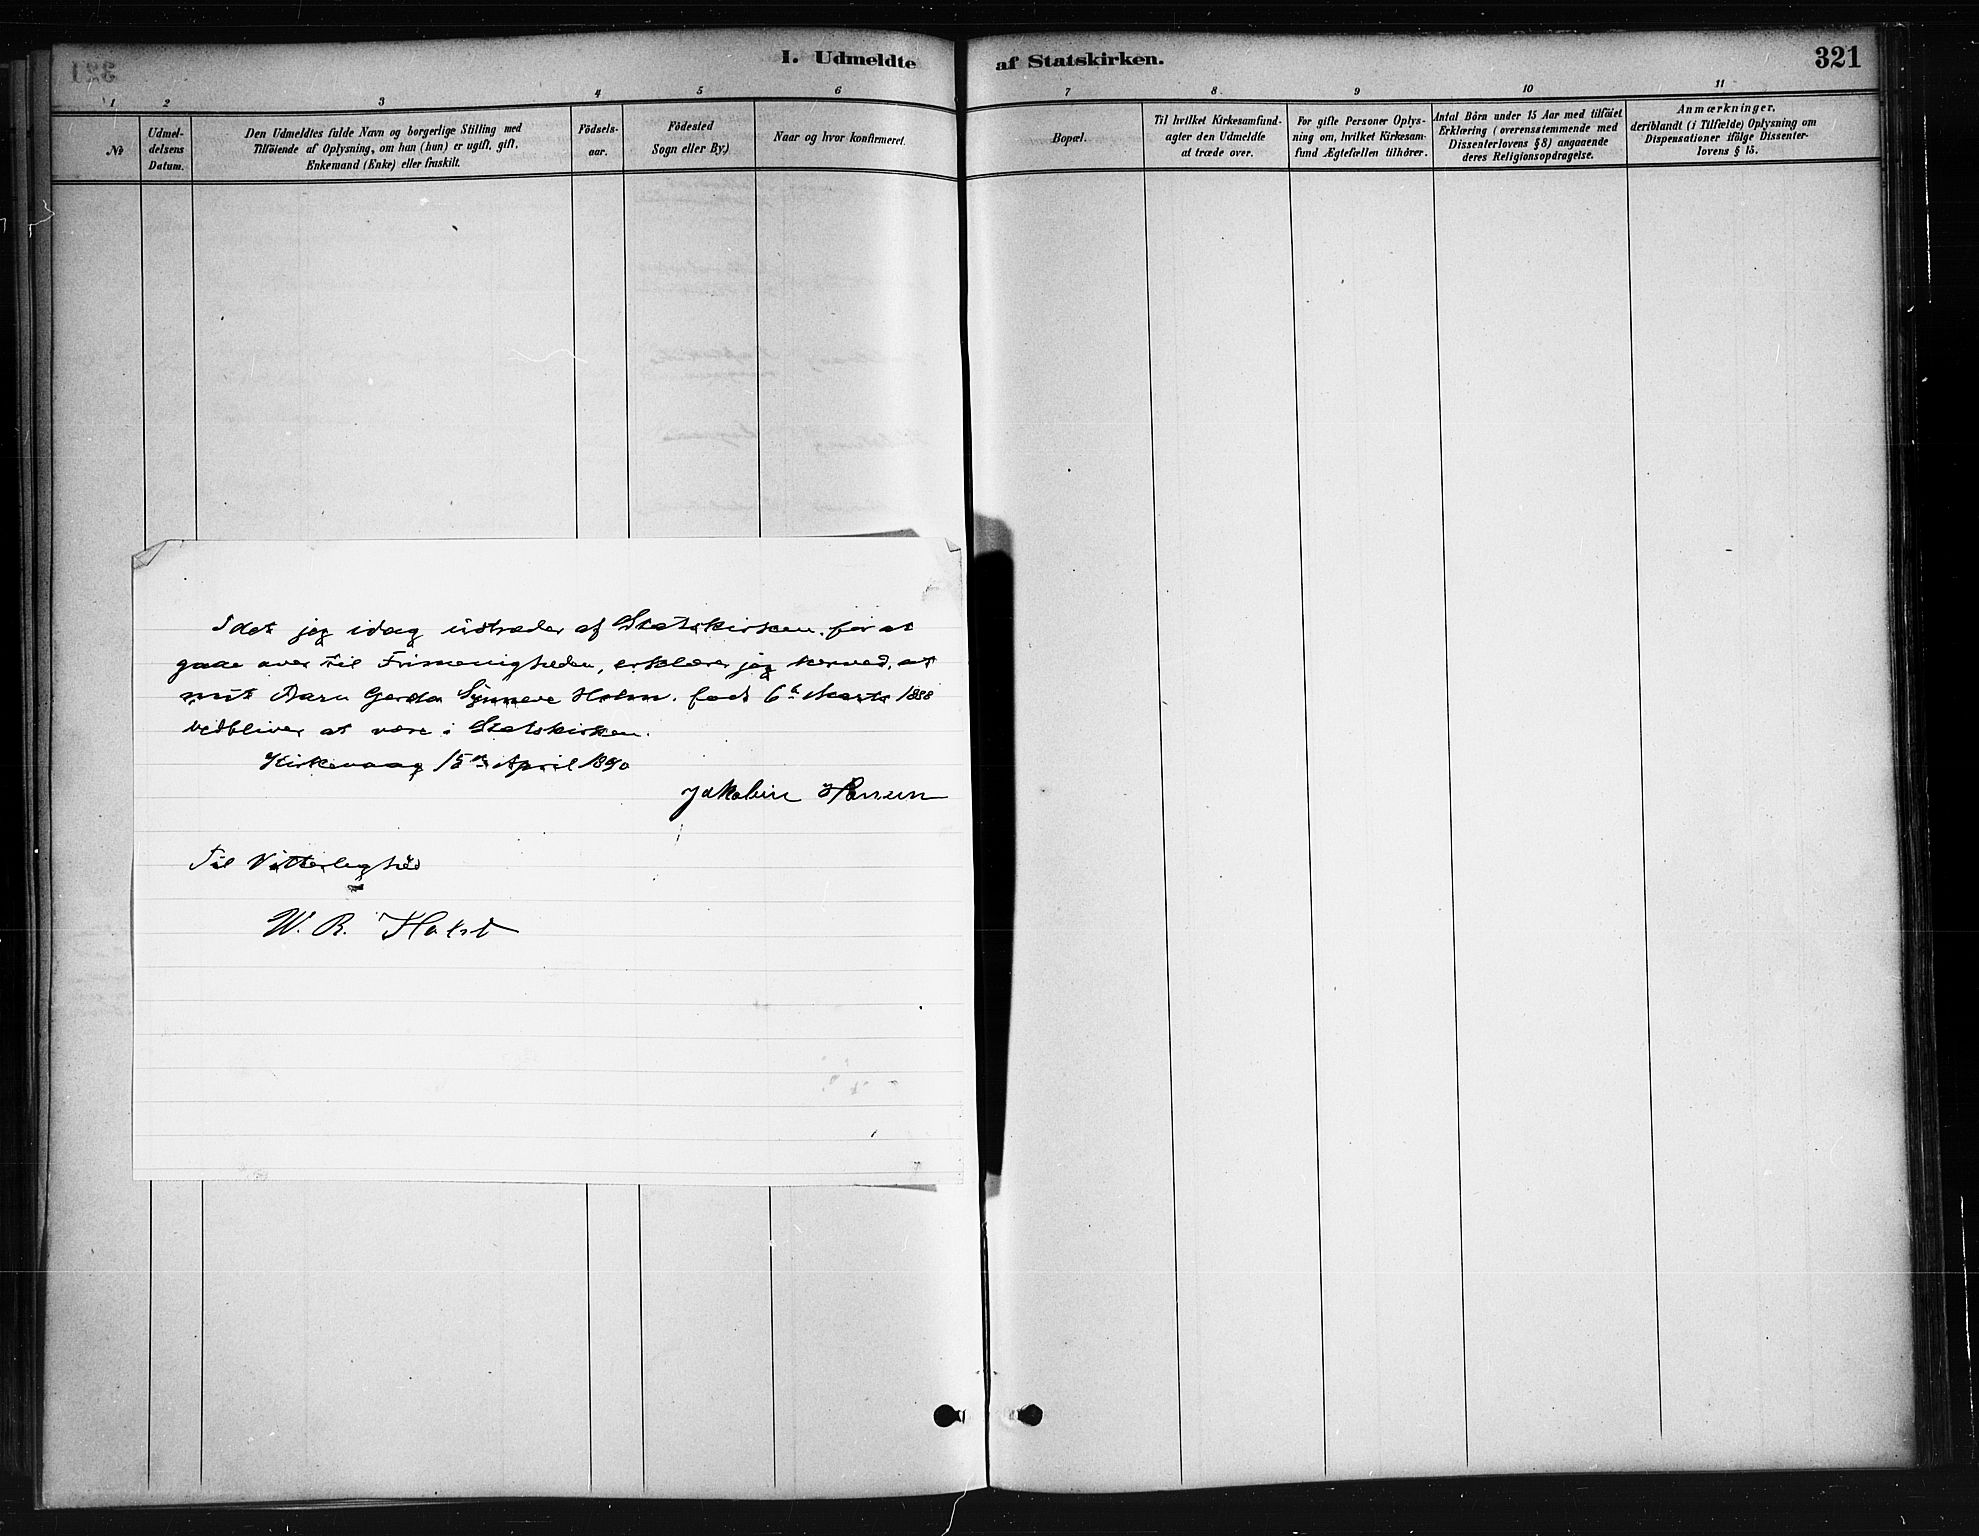 I. Udmeldte af Statskirken.
321
1 2 3 4 5 6 7 8 9 10 11
No
Udmel-
delsens
Datum.
Den Udmeldtes fulde Navn og borgerlige Stilling med
Tilföiende af Oplysning, om han (hun) er ugift, gift,
Enkemand (Enke) eller fraskilt.
Födsels-
aar.
Födested
Sogn eller By.)
Naar og hvor konfirmeret.
Bopæl.
Til hvilket Kirkesamfund-
agter den Udmeldte
at træde over.
For gifte Personer Oplys-
ning om, hvilket Kirkesam-
fund Ægtefællen tilhörer.
Antal Börn under 15 Aar med tilföiet
Erklæring (overensstemmende med
Dissenterlovens § 8) angaaende
deres Religionsopdragelse.
Anmærkninger,
deriblandt (i Tilfælde) Oplysning om
Dispensationer ifölge Dissenter-
lovens § 15.
Idet jeg idag udtræder af Statskirken for at
gaae over til Frimenigheden, erklærer jeg herved, at
mit Barn Gerda Synneve Holm. født 6te Marts 1888
vedbliver at være i Statskirken.
Kirkevaag 15de April 1890
Jakobine Hansen
Til Vitterlighed
W. R. Holst